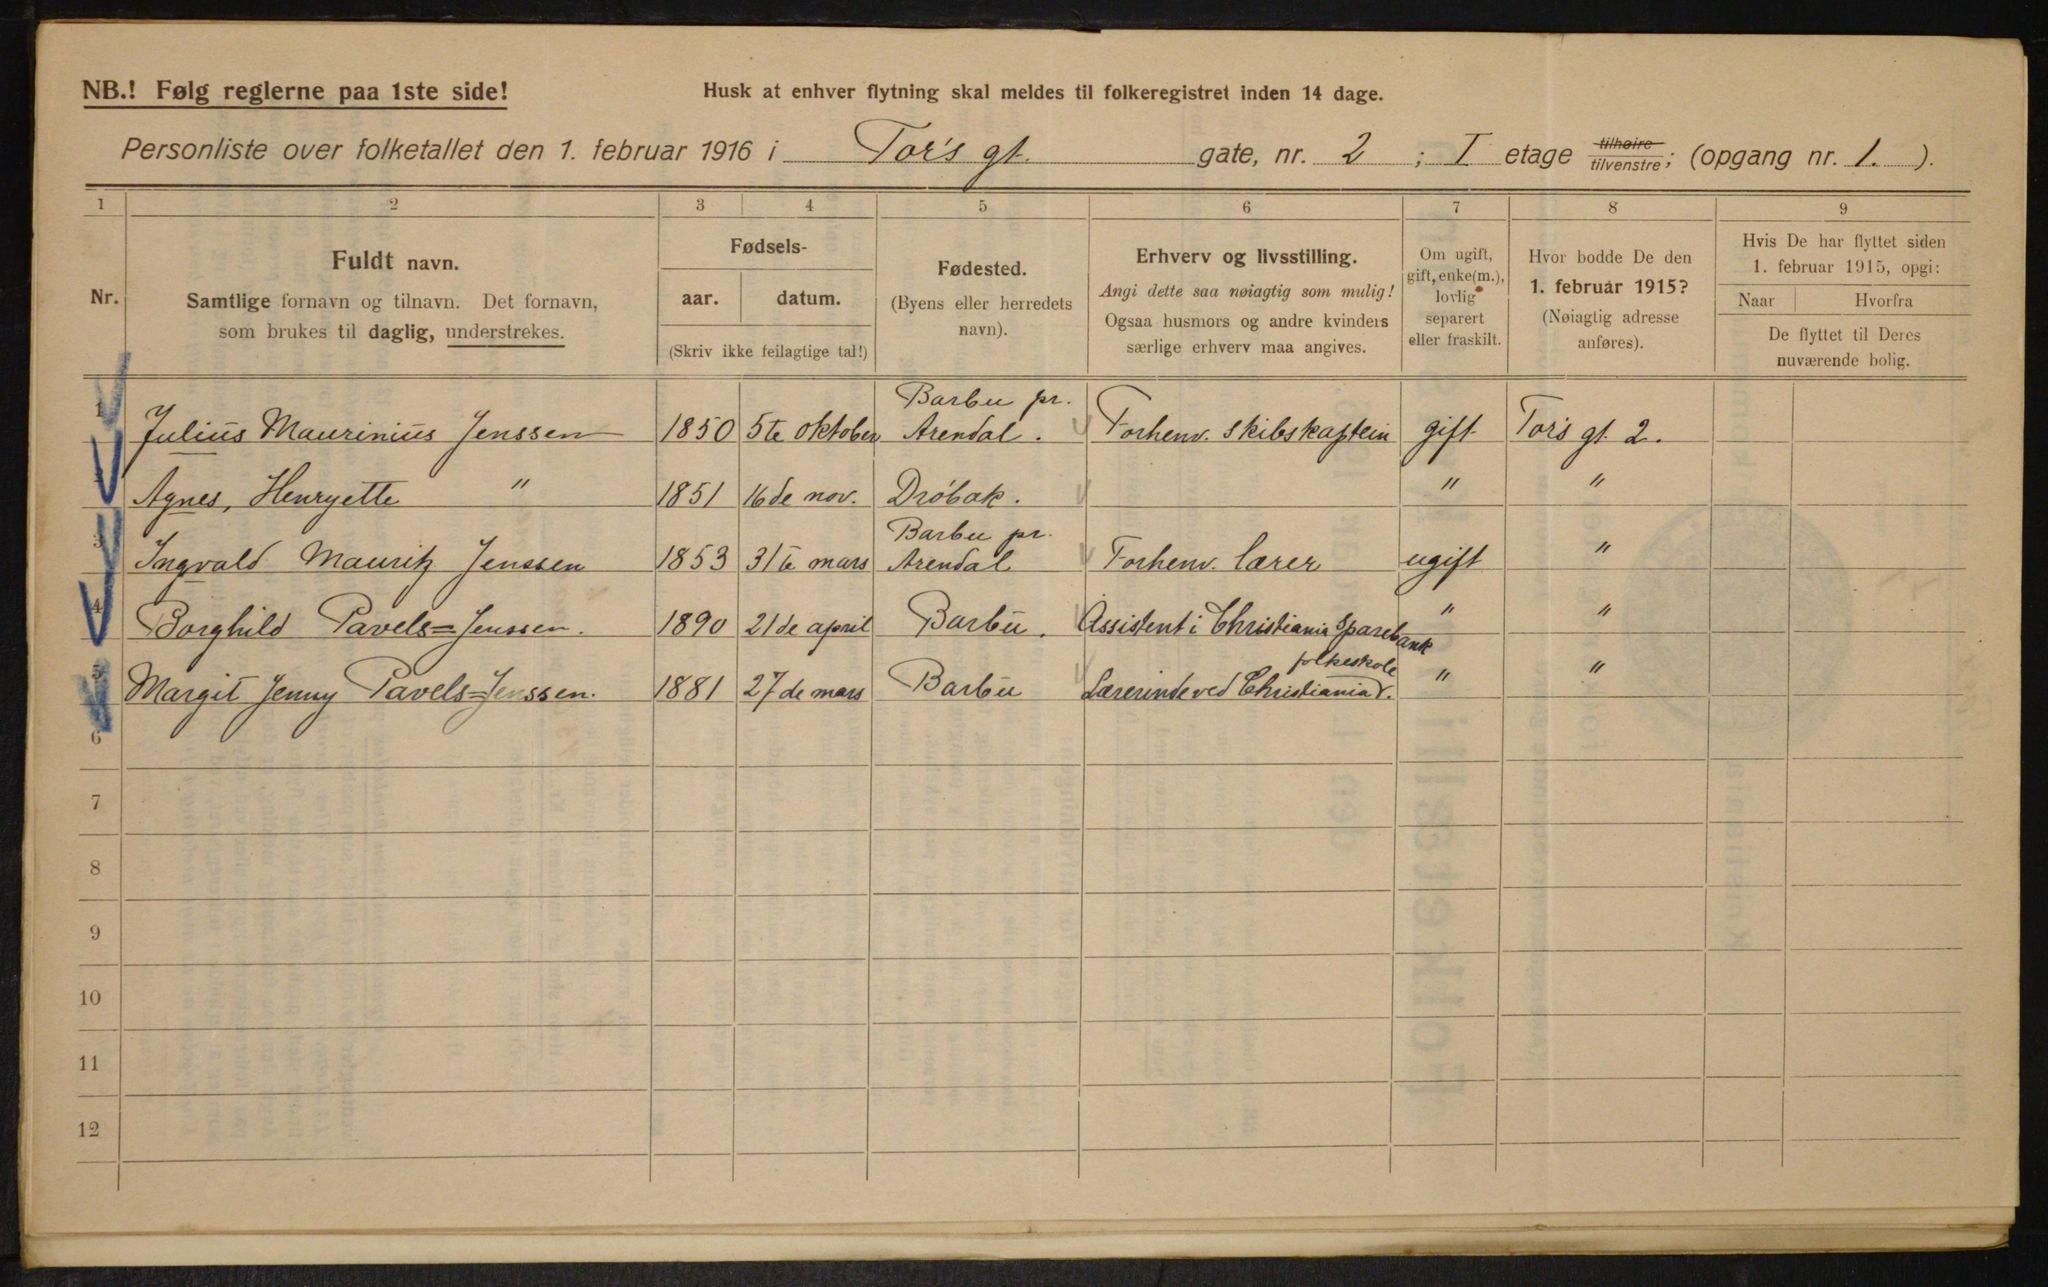 NB.! Følg reglerne paa 1ste side!
Husk at enhver flytning skal meldes til folkeregistret inden 14 dage.
Personliste over folketallet den 1. februar 1916 i Tor's gt. gate, nr. 2 ; I etage tilhøire tilvenstre; (opgang nr. 1. ).
1 2 3 4 5 6 7 8 9
Nr.
Fuldt navn.
Samtlige fornavn og tilnavn. Det fornavn,
som brukes til daglig, understrekes.
Fødsels-
aar. datum.
(Skriv ikke feilagtige tal!)
Fødested.
(Byens eller herredets
navn).
Erhverv og livsstilling.
Angi dette saa nøiagtig som mulig!
Ogsaa husmors og andre kvinders
særlige erhverv maa angives.
Om ugift,
gift, enke(m.),
lovlig
separert
eller fraskilt.
Hvor bodde De den
1. februar 1915?
(Nøiagtig adresse
anføres).
Hvis De har flyttet siden
1. februar 1915, opgi:
Naar Hvorfra
De flyttet til Deres
nuværende bolig.
1 Julius Maurinius Jenssen 1850 5te oktober Barbu pr. Arendal. Forhenv. skibskaptein gift Tors gt. 2.
2 Agnes, Henryette " 1851 16de nov. Drøbak. " "
3 Ingvald Mauritz Jenssen 1853 31te mars Barbu pr. Arendal Forhenv. lærer ugift "
4 Borghild Pavels=Jenssen. 1890 21de april Barbu. Assistent i Christiania Sparebank " "
5 Margit Jenny Pavels=Jenssen. 1881 27de mars Barbu Lærerinde ved Christiania folkeskole. " "
6
7
8
9
10
11
12